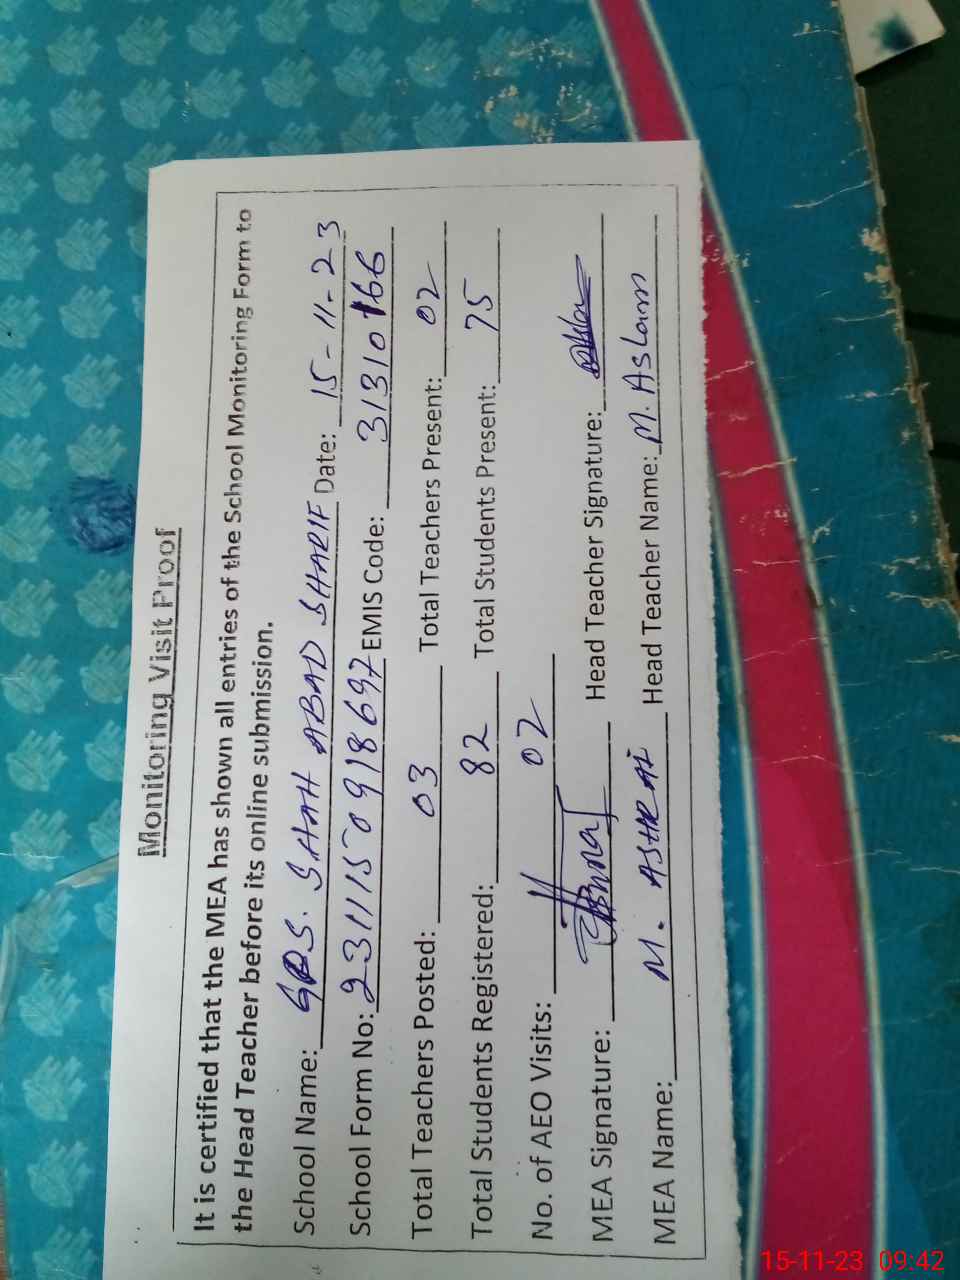 Monitoring Visit Proof
It is certified that the MEA has shown all entries of the School Monitoring Form to
the Head Teacher before its online submission.
School Name: GPS. SHAH ABAD SHARIF Date: 15-11-23
School Form No: 2311150918697 EMIS Code: 31310166
Total Teachers Posted: 03 Total Teachers Present: 02
Total Students Registered: 82 Total Students Present: 75
No. of AEO Visits: 02
MEA Signature: Head Teacher Signature:
MEA Name: M. ASHRAF Head Teacher Name: M. Aslam
15-11-23 09:42